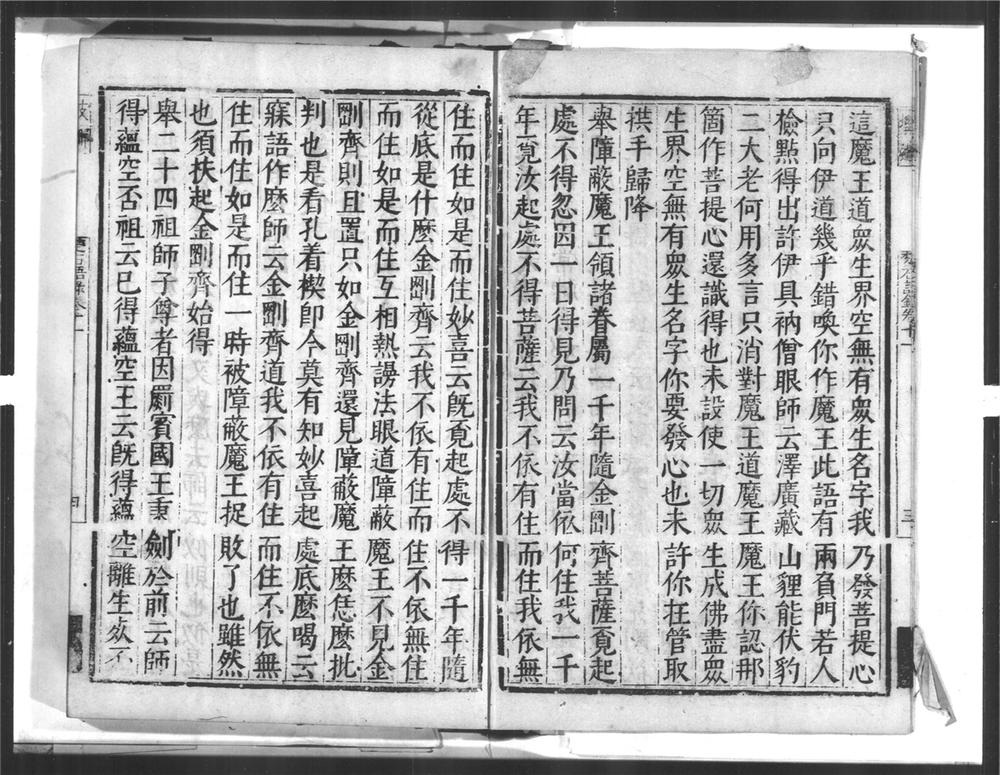 這魔王道眾生界空無有眾生名字我乃發菩提心
只向伊道幾乎錯喚你作魔王此語有兩負門若人
檢點得出許伊具衲僧眼師云澤廣藏山貍能伏豹
二大老何用多言只消對魔王道魔王魔王你認那
箇作菩提心還識得也未設使一切眾生成佛盡眾
生界空無有眾生名字你要發心也未許你在管取
拱手歸降
舉障蔽魔王領諸眷屬一千年隨金剛齊菩薩覓起
處不得忽因一日得見乃問云汝當依何住我一千
年覓汝起處不得菩薩云我不依有住而住我依無
住而住如是而住妙喜云既覓起處不得一千年隨
從底是什麼金剛齊云我不依有住而住不依無住
而住如是而住互相熱謾法眼道障蔽魔王不見金
剛齊則且置只如金剛齊還見障蔽魔王麼恁麼批
判也是看孔着楔即今莫有知妙喜起處底麼喝云
寐語作麼師云金剛齊道我不依有住而住不依無
住而住如是而住一時被障蔽魔王捉敗了也雖然
也須扶起金剛齊始得
舉二十四祖師子尊者因罽賓國王秉劍於前云師
得蘊空否祖云已得蘊空王云既得蘊空離生死不